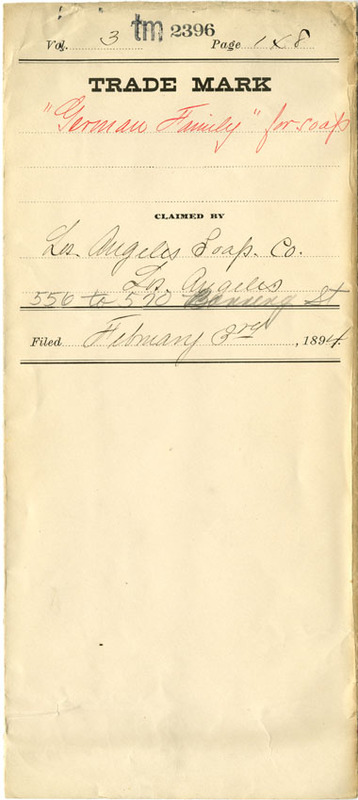 tm 2396
Vol. 3 Page 148
TRADE MARK
"German Family" for soap
CLAIMED BY
Los Angeles Soap. Co.
Los Angeles
556 to 570 Banning St
Filed February 3rd, 1894.